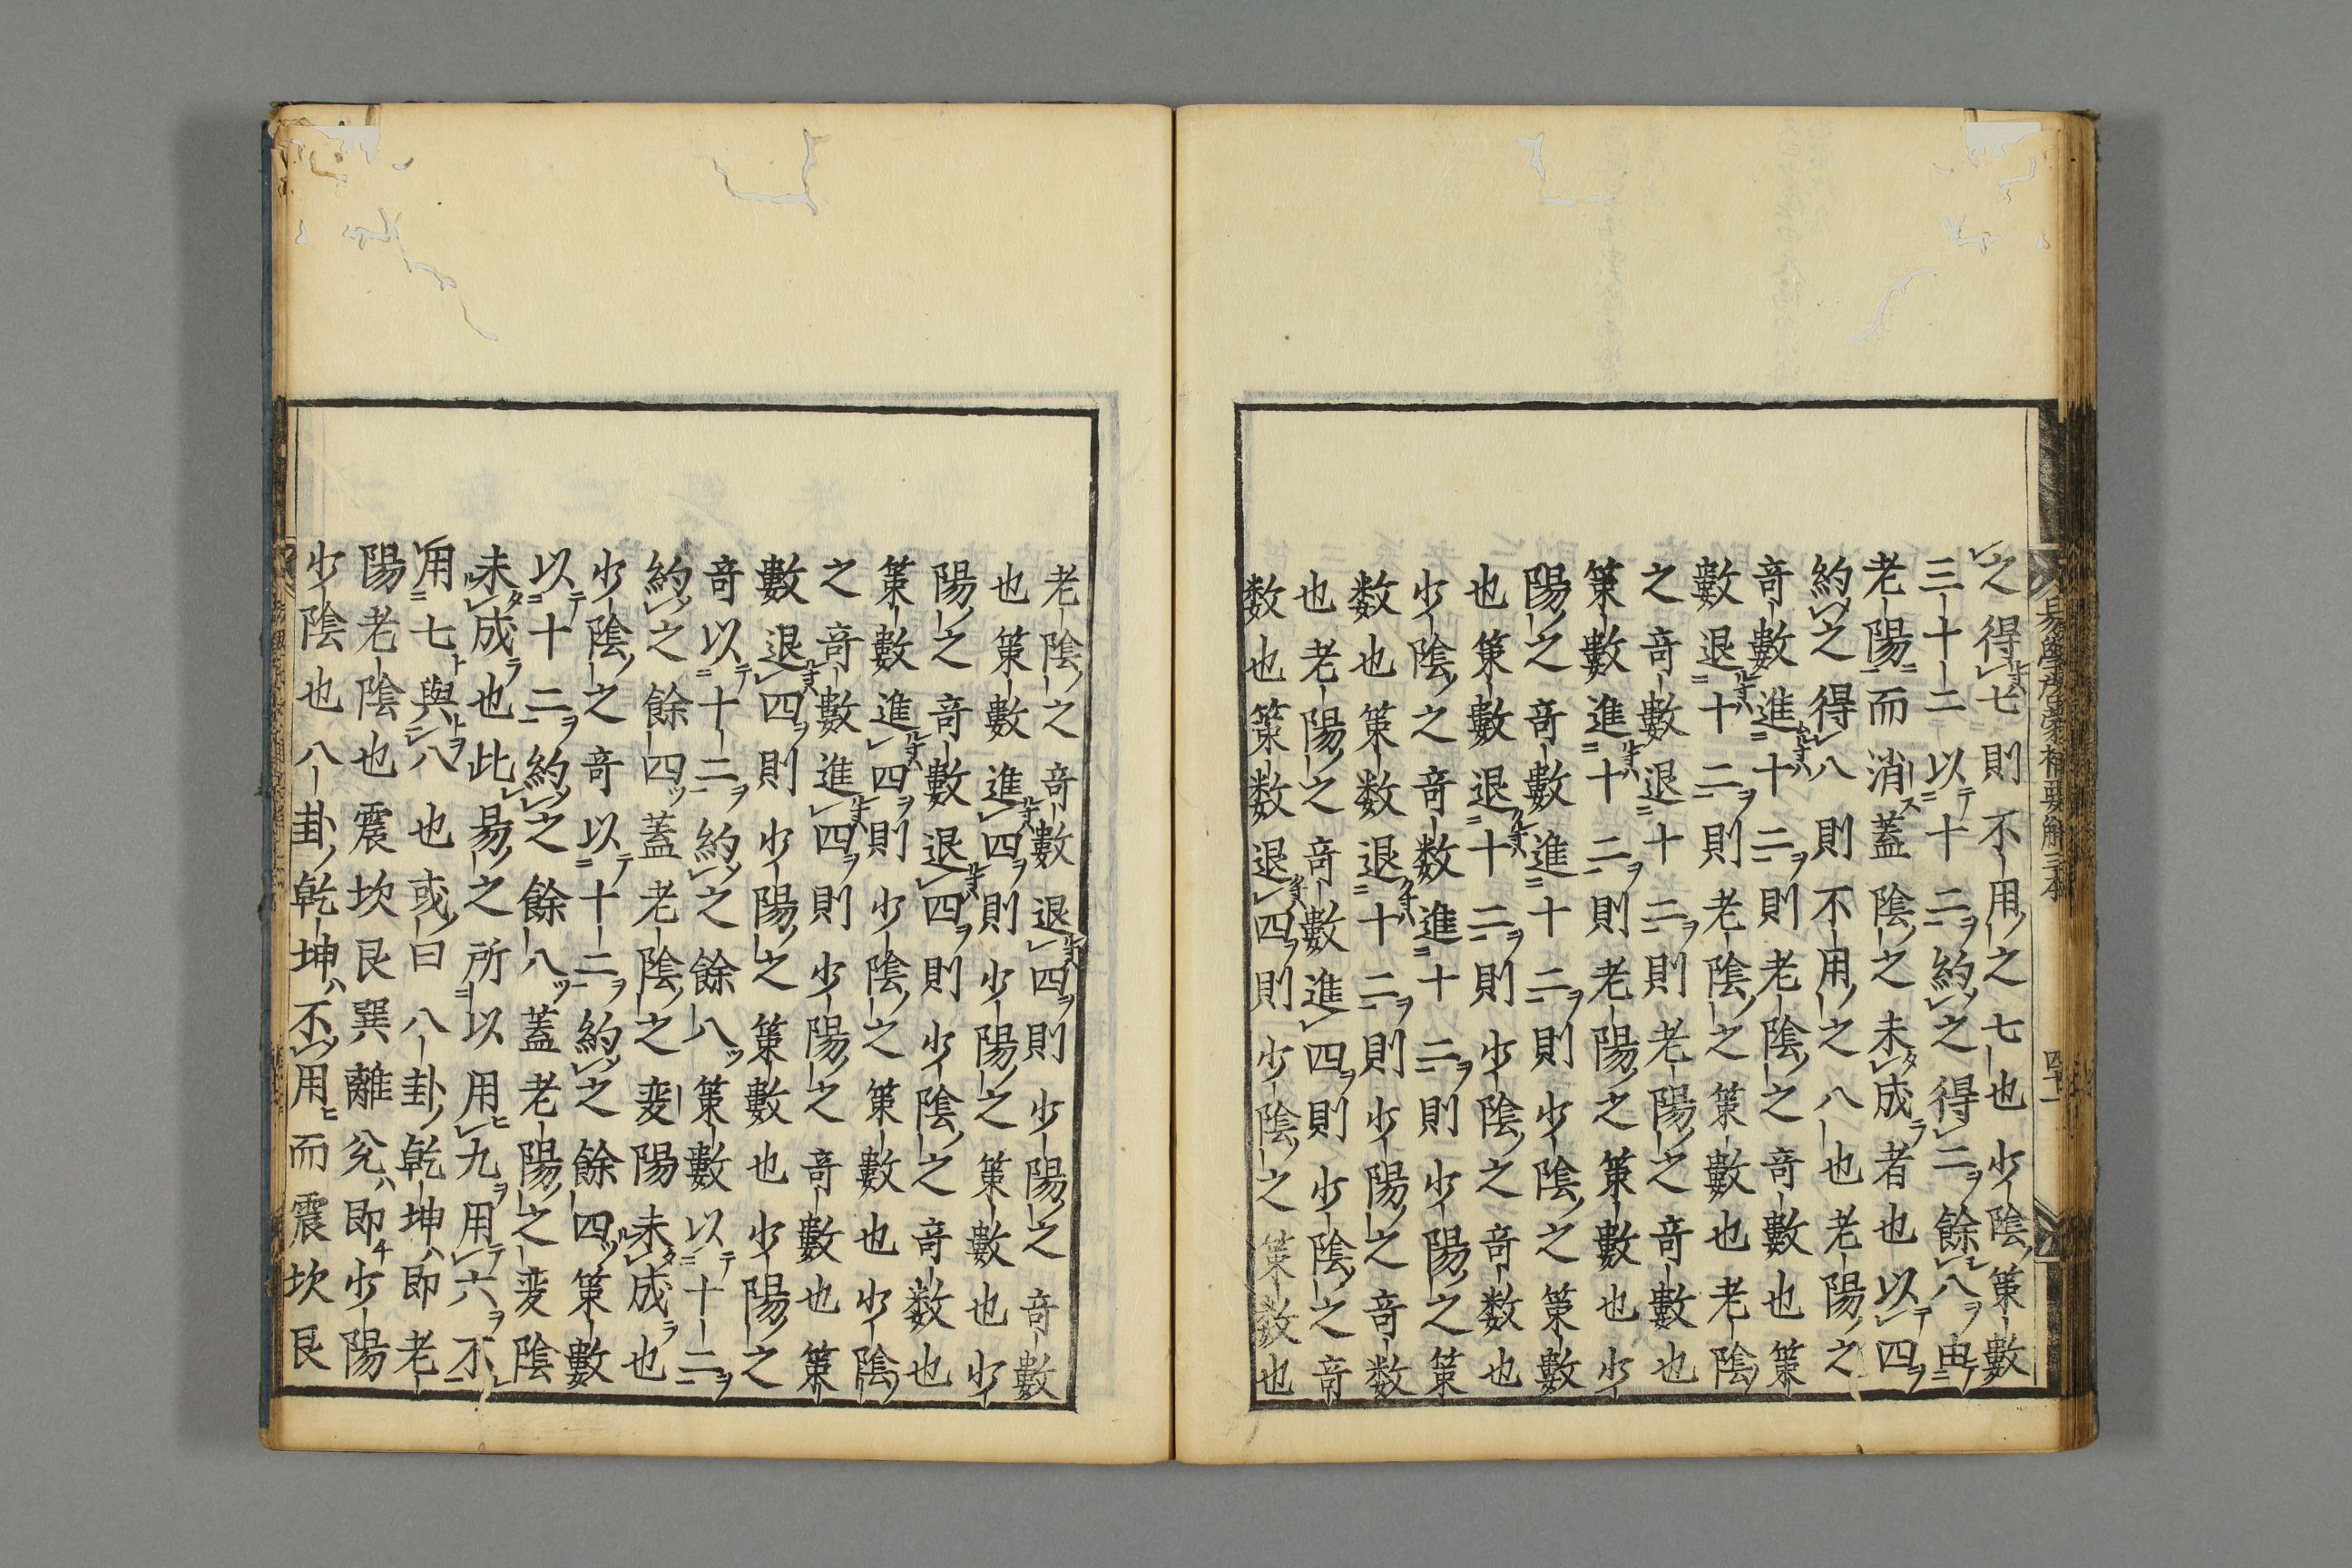 之得七則不用之七也少陰策數
三十二以十二約之得二餘八由
老陽而消蓋陰之未成者也以四
約之得八則不用之八也老陽之
奇數進十二則老陰之奇數也策
數退十二則老陰之策數也老陰
之奇數退十二則老陽之奇數也
策數進十二則老陽之策數也少
陽之奇數進十二則少陰之策數
也策數退十二則少陰之奇数也
少陰之奇数進十二則少陽之策
数也策数退十二則少陽之奇数
也老陽之奇數進四則少陰之奇
数也策数退四則少陰之策数也
易學啓蒙補要解三本
四十一
老陰之奇數退四則少陽之奇數
也策數進四則少陽之策數也少
陽之奇數退四則少陰之奇数也
策數進四則少陰之策數也少陰
之奇數進四則少陽之奇數也策
數退四則少陽之策數也少陽之
奇以十二約之餘八策數以十二
約之餘四蓋老陰之変陽未成也
少陰之奇以十二約之餘四策數
以十二約之餘八蓋老陽之変陰
未成也此易之所以用九用六不
用七與八也或曰八卦乾坤即老
陽老陰也震坎艮巽離兊即少陽
少陰也八卦乾坤不用而震坎艮